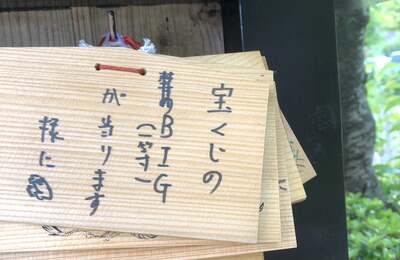 宝くじの
BIG
(一等)
が当ります
様に